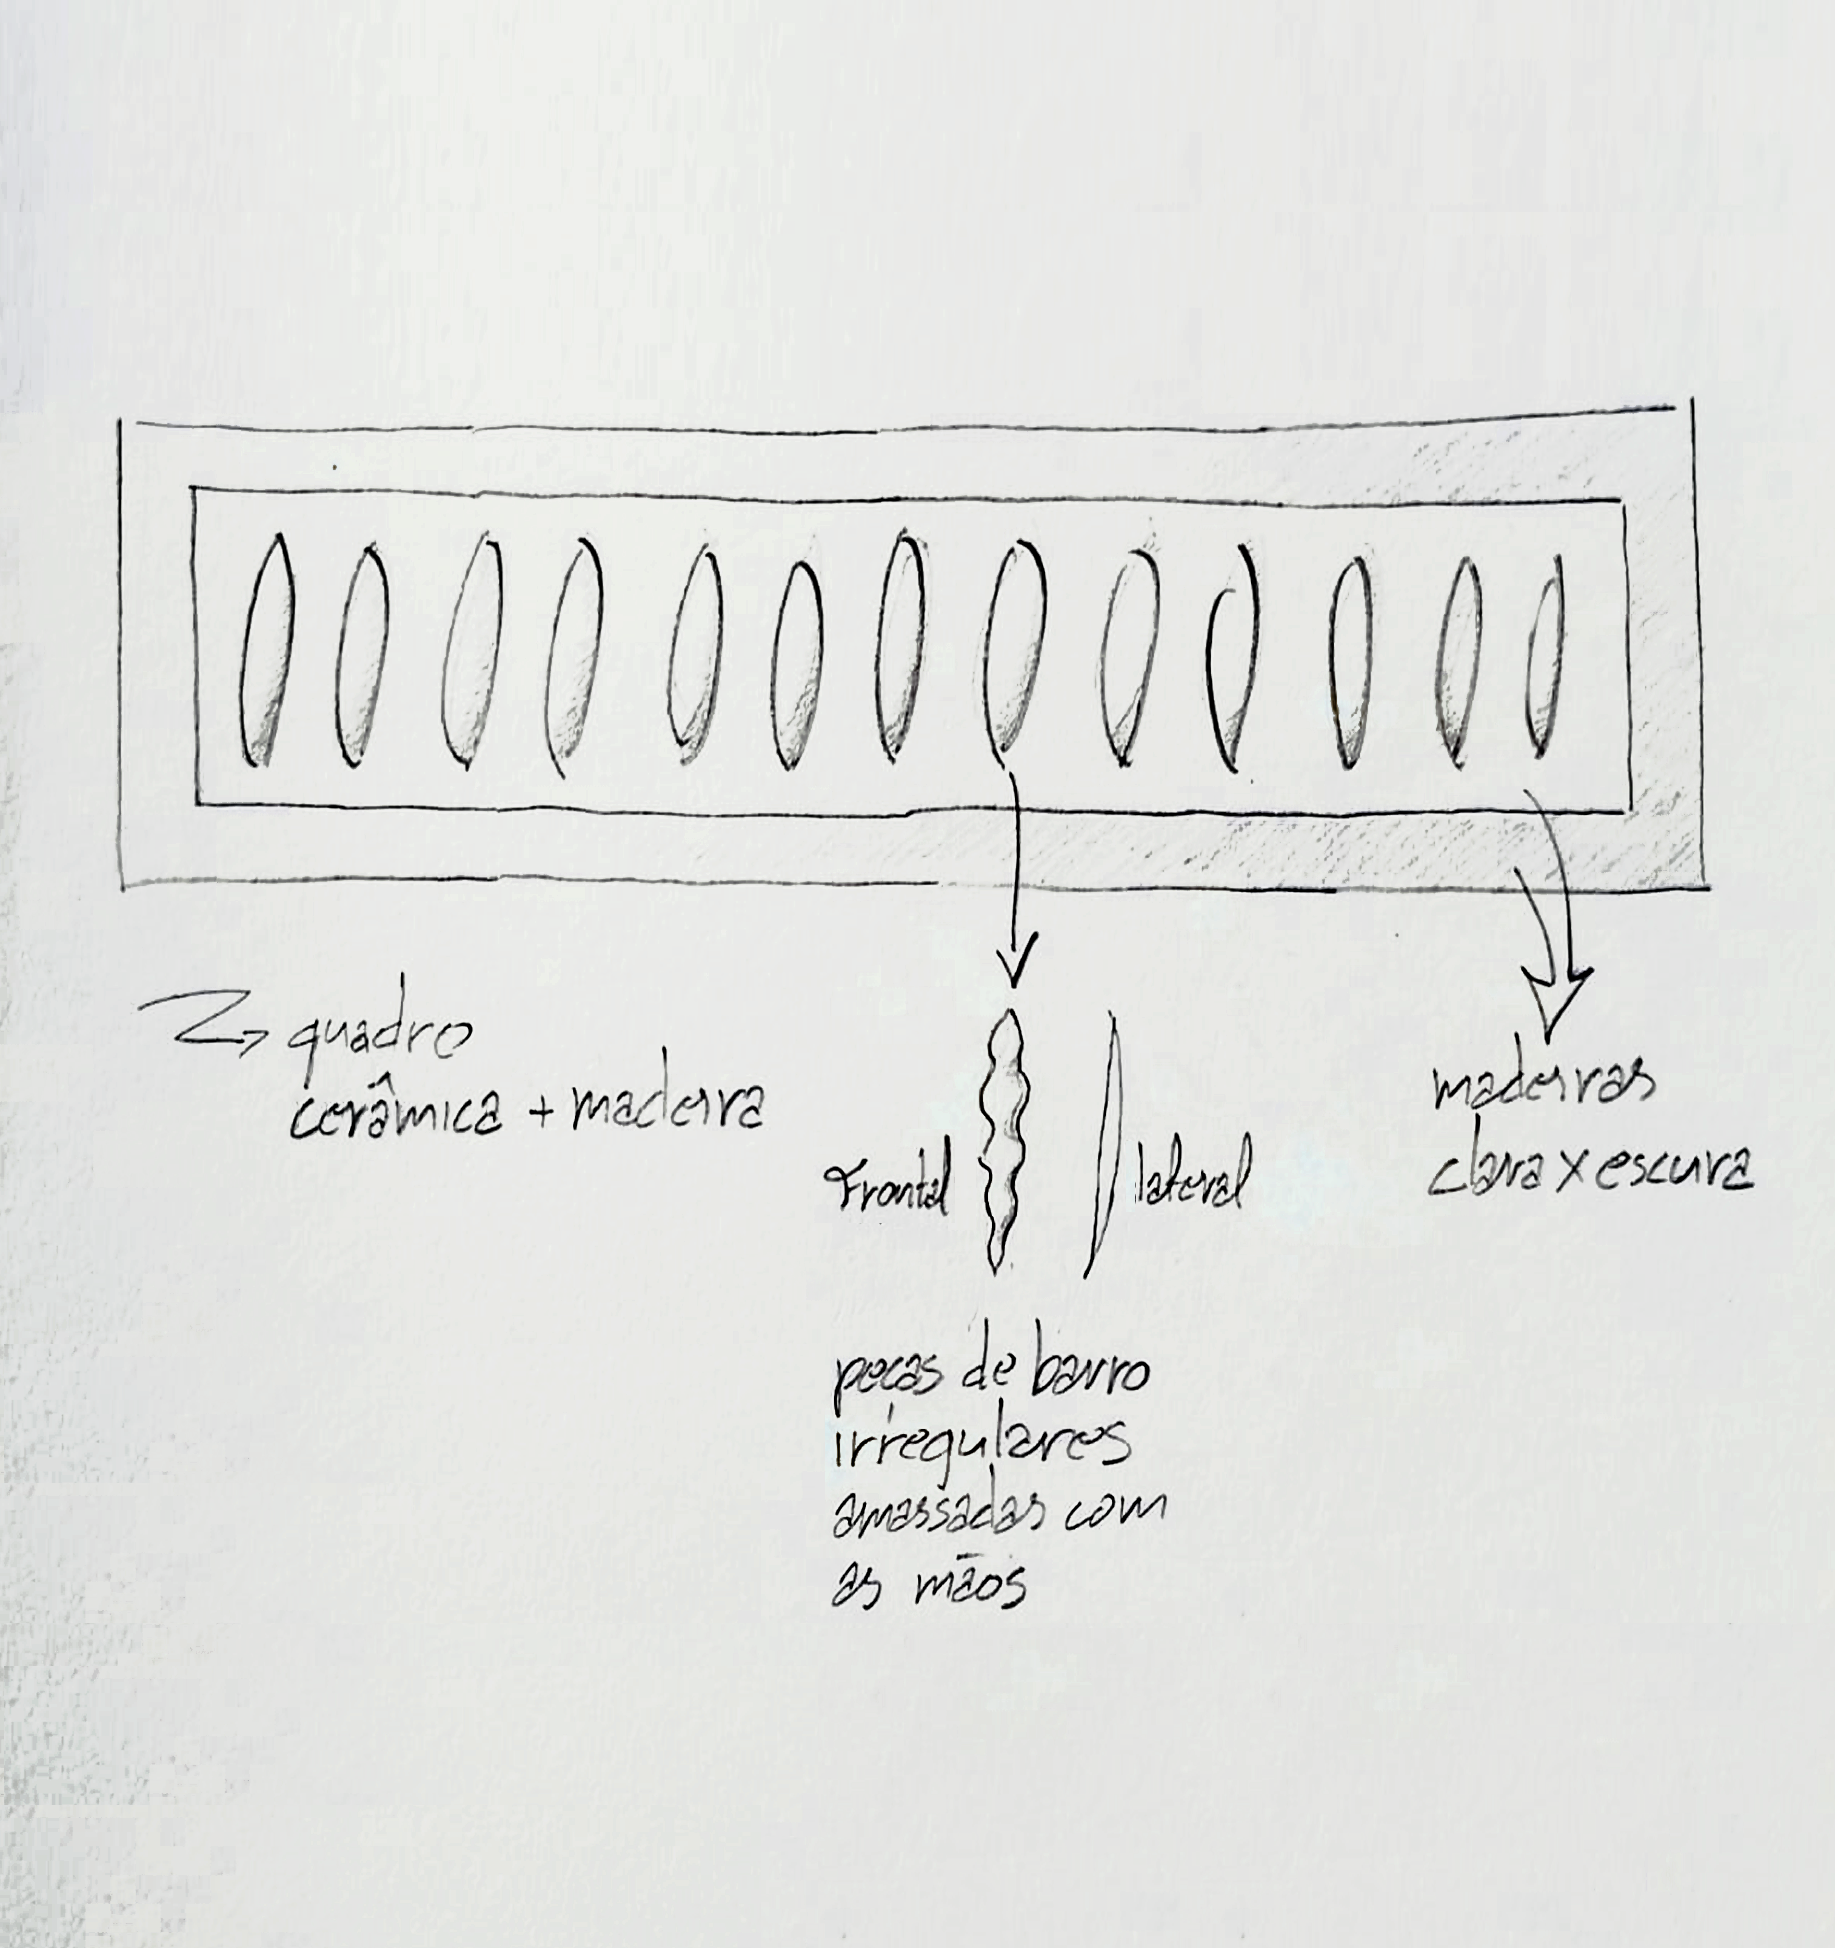 quadro
cerâmica + madeira
Frontal
lateral
madeiras
clara x escura
peças de barro
irregulares
amassadas com
as mãos